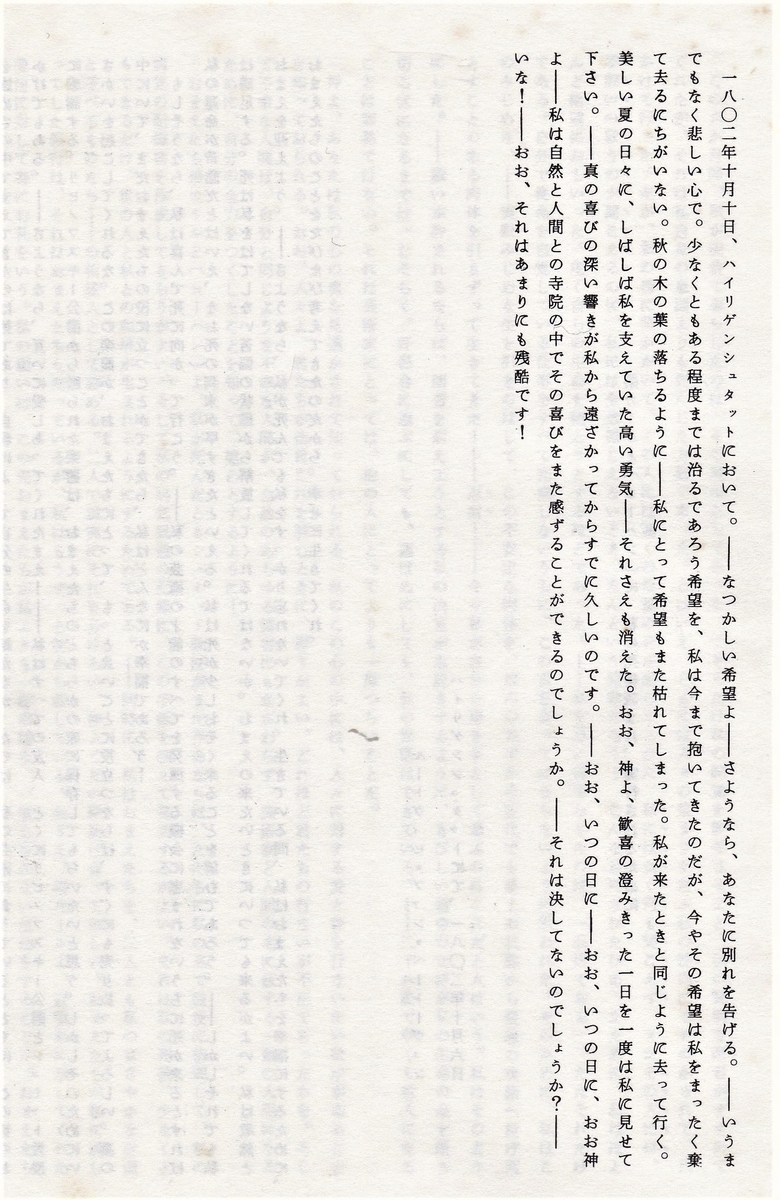 一八〇二年十月十日、ハイリゲンシュタットにおいて。――なつかしい希望よ――さようなら、あなたに別れを告げる。――いうま
でもなく悲しい心で。少なくともある程度までは治るであろう希望を、私は今まで抱いてきたのだが、今やその希望は私をまったく棄
て去るにちがいない。秋の木の葉の落ちるように――私にとって希望もまた枯れてしまった。私が来たときと同じように去って行く。
美しい夏の日々に、しばしば私を支えていた高い勇気――それさえも消えた。おお、神よ、歓喜の澄みきった一日を一度は私に見せて
下さい。――真の喜びの深い響きが私から遠ざかってからすでに久しいのです。――おお、いつの日に――おお、いつの日に、おお神
よ――私は自然と人間との寺院の中でその喜びをまた感ずることができるのでしょうか。――それは決してないのでしょうか？――
いな！――おお、それはあまりにも残酷です！